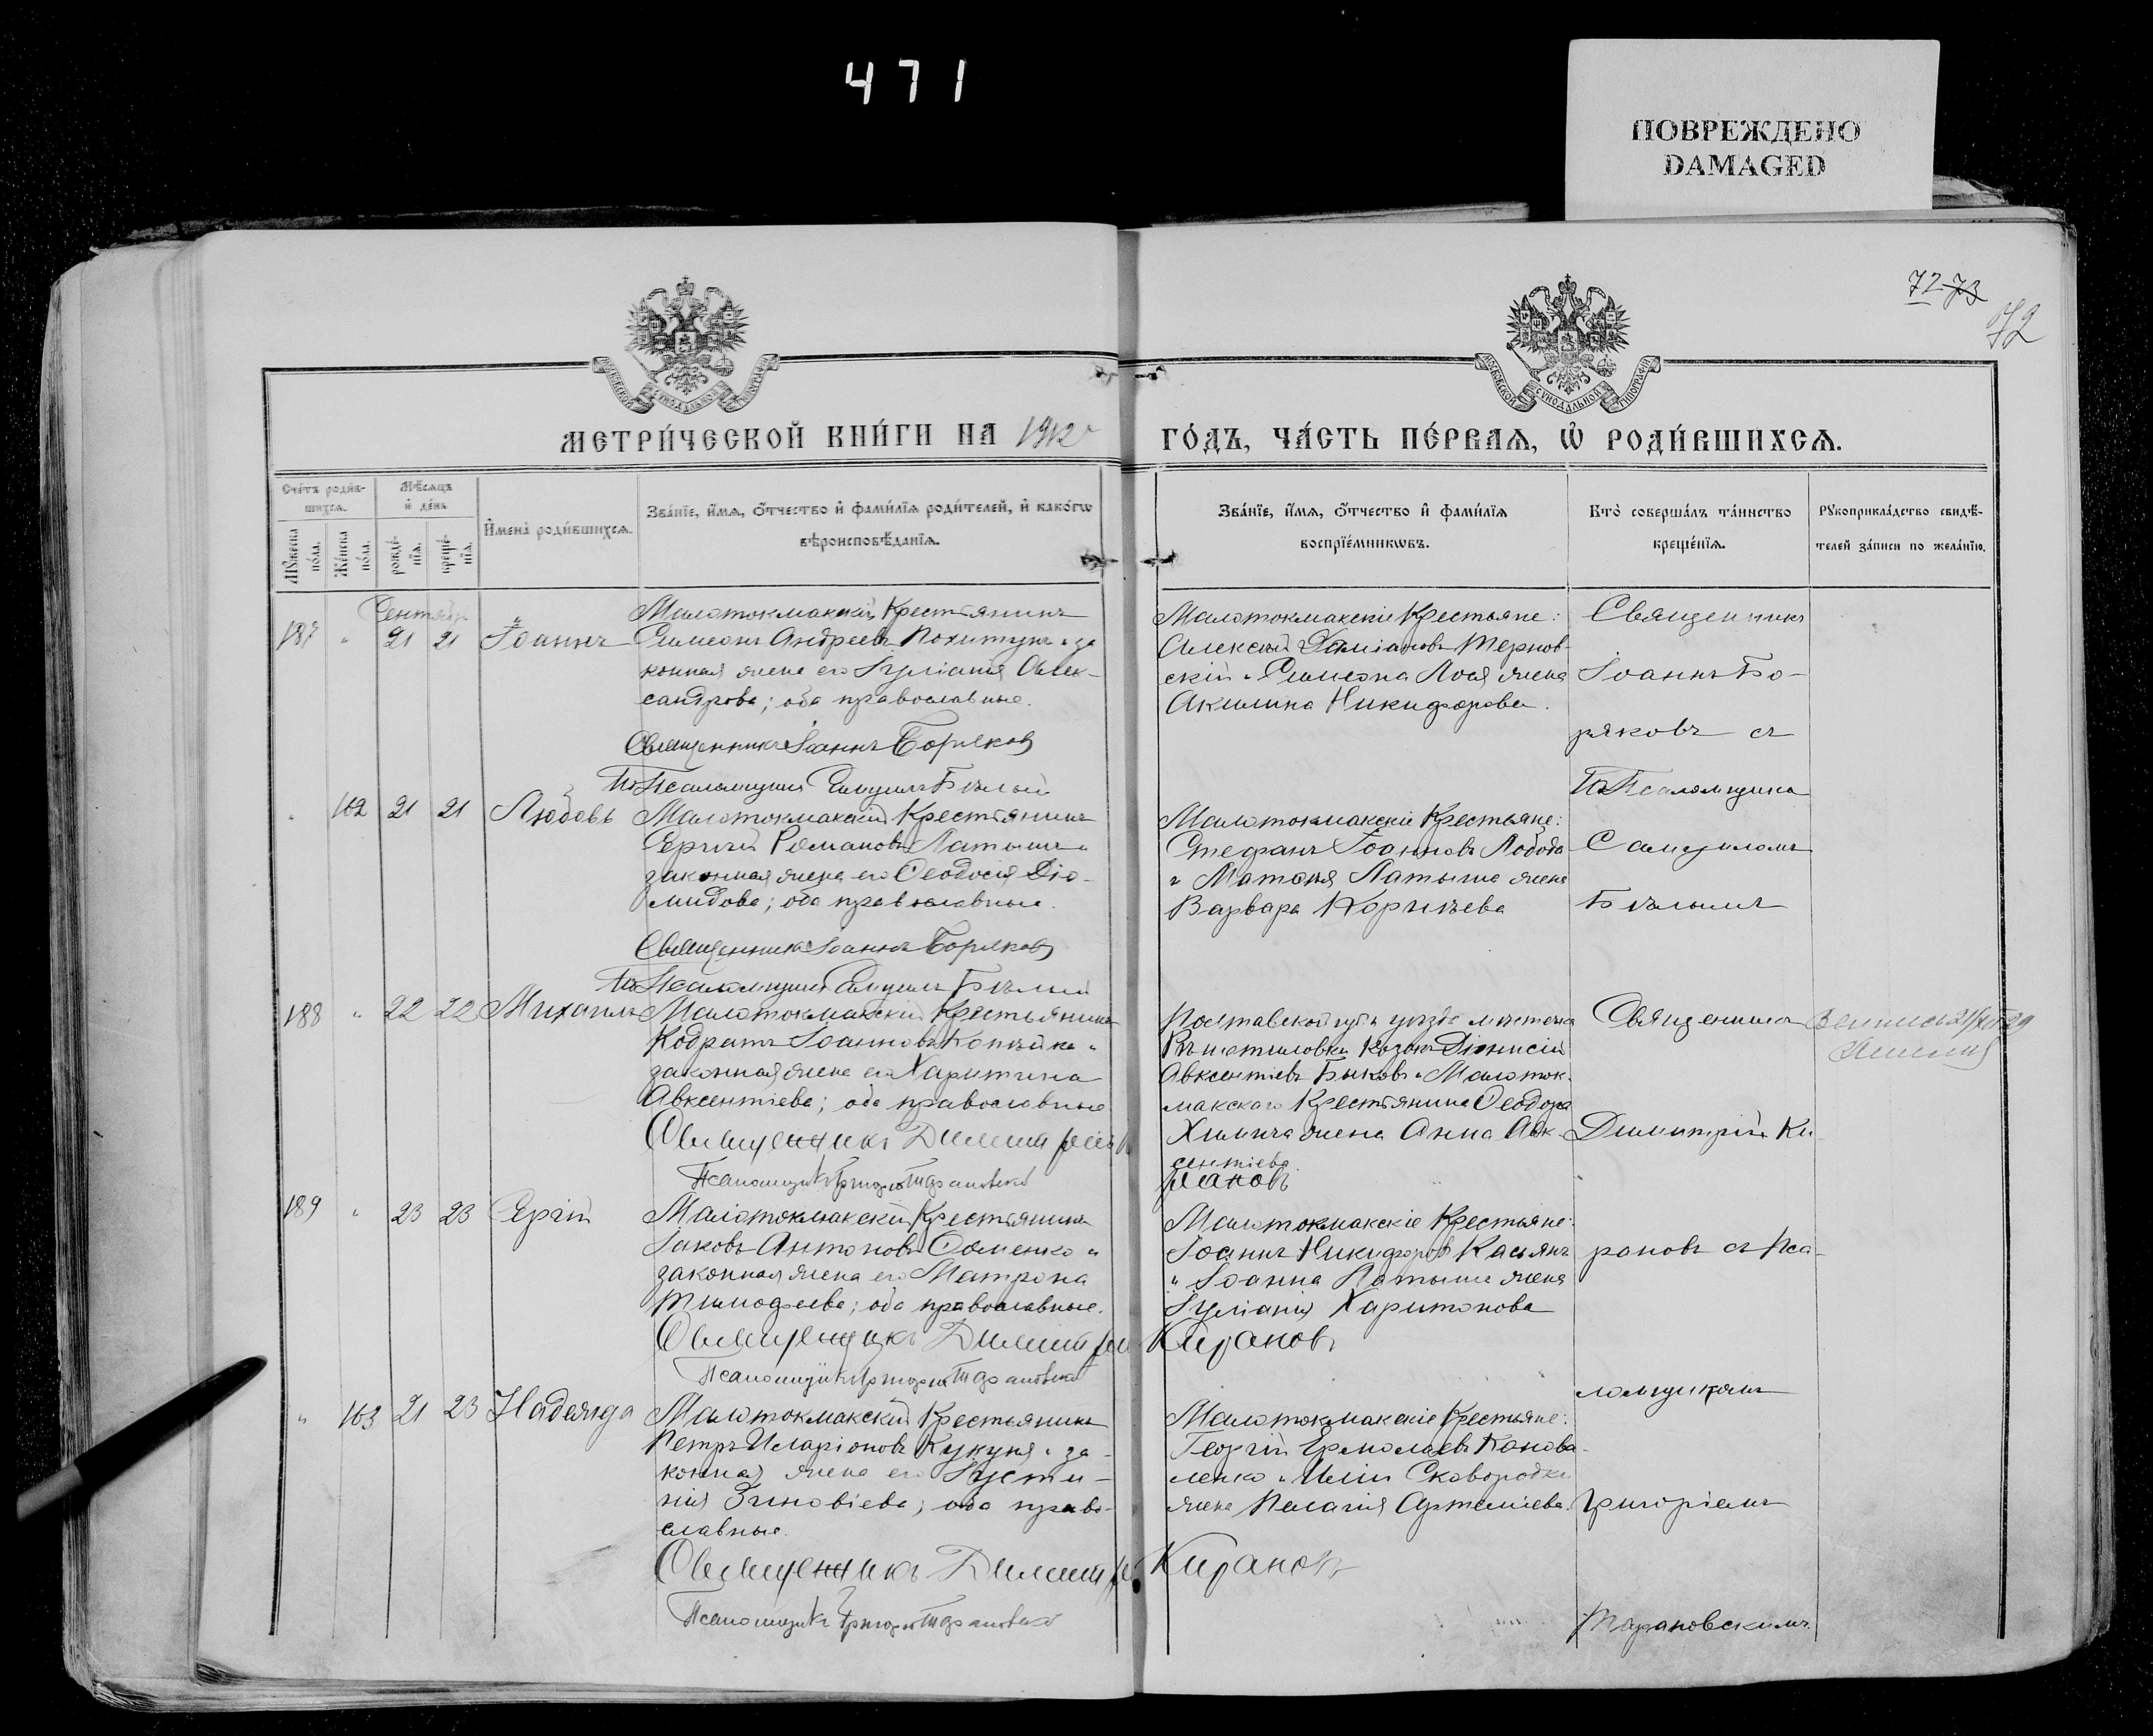 471
ПОВРЕЖДЕНО
DAMAGED
72 73
72
МОСКОВСКОЙ СѴНОДАЛЬНОЙ ТИПОГРАФІИ
МОСКОВСКОЙ СѴНОДАЛЬНОЙ ТИПОГРАФІИ
МЕТРИ́ЧЕСКОЙ КНИ́ГИ НА 1912
ГО́ДЪ, ЧА́СТЬ ПЕ́РВАѦ, Ѡ҆ РОДИ́ВШИХСѦ.
Сче́тъ роди́в-
шихсѧ.
Мꙋ́жеска по́ла.
Же́нска по́ла.
Мѣ́сѧцъ
и҆ де́нь
рожде́-
нїѧ.
креще́-
нїѧ.
И҆мена̀ роди́вшихсѧ.
Зва́нїе, и҆́мѧ, ѻ҆́тчество и҆ фами́лїѧ роди́телей, и҆ како́гѡ
вѣроисповѣ́данїѧ.
Зва́нїе, и҆́мѧ, ѻ҆́тчество и҆ фами́лїѧ
воспрїе́мникѡвъ.
Кто̀ соверша́лъ та́инство
креще́нїѧ.
Рꙋкоприкла́дство свидѣ́-
телей за́писи по жела́нїю.
Сентябрь
187 " 21 21 Іоаннъ
Малотокмакскій Крестьянинъ
Симеонъ Андреевъ Похитунъ и за
конная жена его Іуліанія Алек-
сандрова; оба православные.
Священникъ Іоаннъ Боряковъ
Псаломщика Самуилъ Бѣлый
Малотокмакскіе Крестьяне:
Алексій Даміановъ Тернов-
скій и Симеона Лоя жена
Акилина Никифорова.
Священникъ
Іоаннъ Бо-
ряковъ съ
Псаломщика
" 102 21 21 Любовь
Малотокмакскій Крестьянинъ
Сергій Романовъ Латышъ и
законная жена его Ѳеодосія Діо-
мидова; оба православные.
Священникъ Іоаннъ Боряковъ
Псаломщика Самуилъ Бѣлый
Малотокмакскіе Крестьяне:
Стефанъ Іоанновъ Лобода
и Латыша жена
Варвара Корнѣева
Самуиломъ
Бѣлымъ
188 " 22 22 Михаилъ
Малотокмакскій Крестьянинъ
Кодратъ Іоанновъ Копѣйка и
законная жена его Харитина
Авксентіева; оба православные
Священникъ Димитрій
Псаломщикъ Григорій Тарановскій
Полтавской губ. и уѣзда мѣстечка
Рѣшетиловки Козакъ Діонисій
Авксентіевъ Быковъ и Малоток-
макскаго Крестьянина Ѳеодора
жена Анна Авк-
сентіева.
Кирановъ
Священникъ
Димитрій Ки-
189 " 23 23 Сергій
Малотокмакскій Крестьянинъ
Іаковъ Антоновъ Ѳоменко и
законная жена его Матрона
Тимоѳеева; оба православные.
Священникъ Димитрій Кирановъ
Псаломщикъ Григорій Тарановскій
Малотокмакскіе Крестьяне:
Іоаннъ Никифоровъ Касьянъ
и Іоанна Латыша жена
Іуліанія Харитонова
рановъ съ Пса-
ломщикомъ
" 103 21 23 Надежда
Малотокмакскій Крестьянинъ
Петръ Иларіоновъ Кукуня и за-
конная жена его Іусти-
нія Зиновіева; оба право-
славные.
Священникъ Димитрій Кирановъ
Псаломщикъ Григорій Тарановскій
Малотокмакскіе Крестьяне:
Георгій Ермолаевъ Конова-
ленко и Иліи Сковородки
жена Пелагія Артеміева.
Григоріемъ
Тарановскимъ